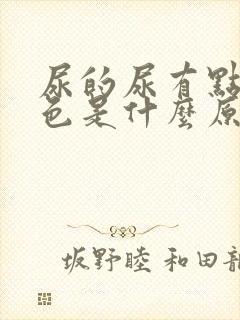 尿的尿有點
色是什麼原
坂野睦 和田龍